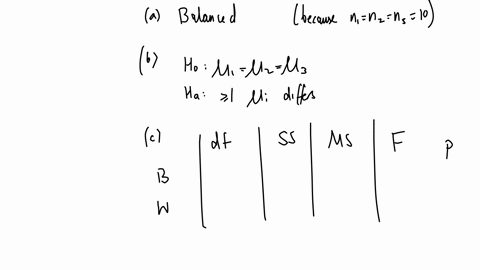 (a) Balanced (because n₁=n₂=n₃=10)
(b) H₀: μ₁=μ₂=μ₃
Ha: ≥1 μi differs
(c) df SS MS F P
B
W